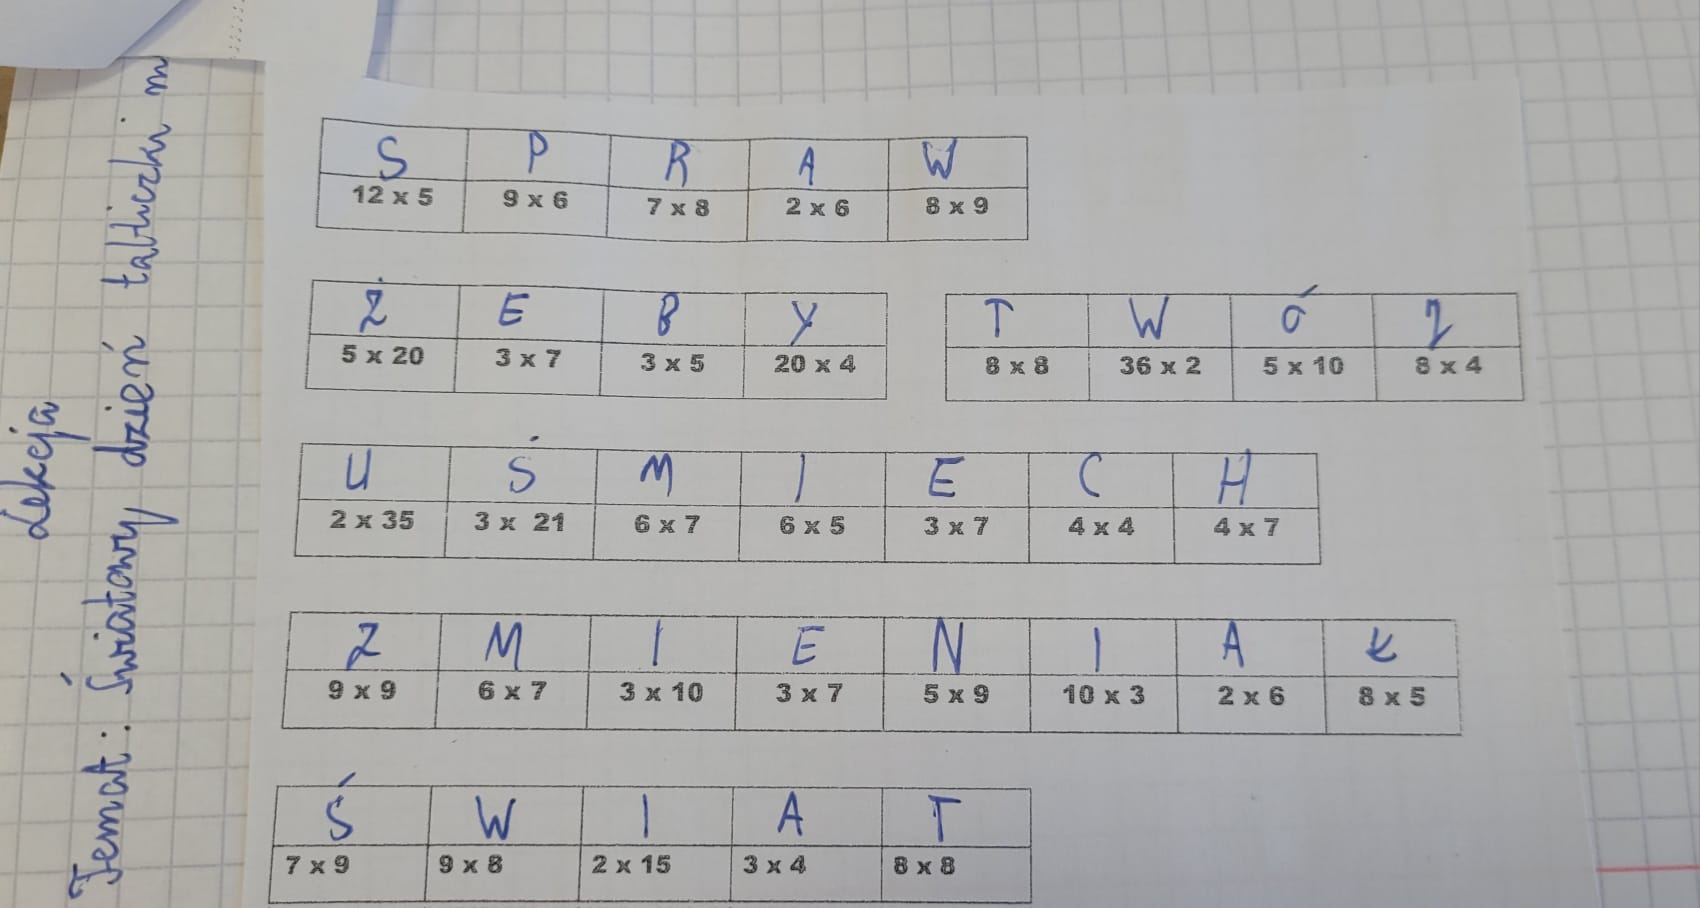 Lekcja
Temat: Światowy dzień tabliczki m
S P R A W
12 x 5 9 x 6 7 x 8 2 x 6 8 x 9
Ż E B Y
5 x 20 3 x 7 3 x 5 20 x 4
T W Ó J
8 x 8 36 x 2 5 x 10 8 x 4
U Ś M I E C H
2 x 35 3 x 21 6 x 7 6 x 5 3 x 7 4 x 4 4 x 7
Z M I E N I A Ł
9 x 9 6 x 7 3 x 10 3 x 7 5 x 9 10 x 3 2 x 6 8 x 5
Ś W I A T
7 x 9 9 x 8 2 x 15 3 x 4 8 x 8